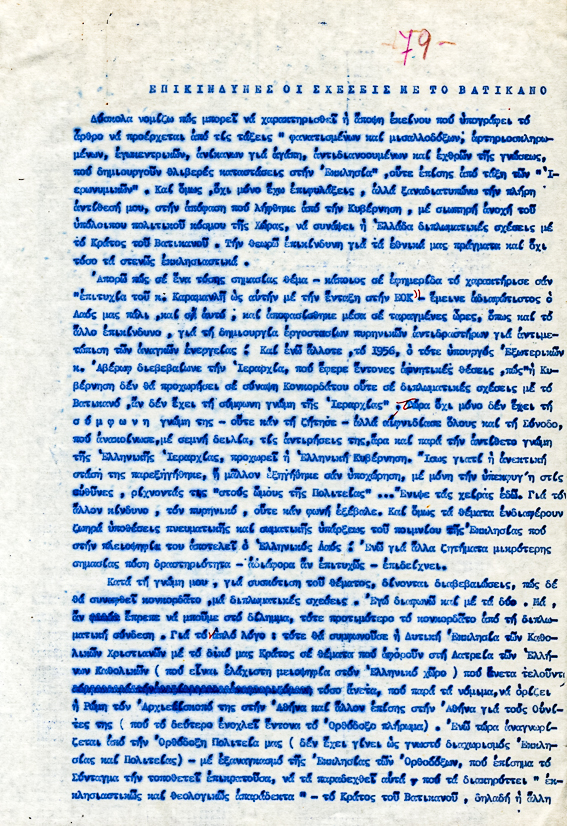 -79-
ΕΠΙΚΙΝΔΥΝΕΣ ΟΙ ΣΧΕΣΕΙΣ ΜΕ ΤΟ ΒΑΤΙΚΑΝΟ
Δύσκολα νομίζω πώς μπορεῖ νά χαρακτηρισθεῖ ἡ ἄποψη ἐκείνου πού ὑπογράφει τό
ἄρθρο νά προέρχεται ἀπό τίς τάξεις " φανατισμένων καί μισαλλοδόξων, ἀρτηριοσκληρω-
μένων, ἐγωκεντρικῶν, ἀνίκανων γιά ἀγάπη, ἀντιδιανοουμένων καί ἐχθρῶν τῆς γνώσεως,
πού δημιουργοῦν θλιβερές καταστάσεις στήν Ἐκκλησία" ,οὔτε ἐπίσης ἀπό τάξη τῶν " Ἱ-
ερωνυμικῶν" . Καί ὅμως ,ὄχι μόνο ἔχω ἐπιφυλάξεις , ἀλλά ξαναδιατυπώνω τήν πλήρη
ἀντίθεσή μου, στήν ἀπόφαση πού λήφθηκε ἀπό τήν Κυβέρνηση , μέ σιωπηρή ἀνοχή τοῦ
ὑπόλοιπου πολιτικοῦ κόσμου τῆς Χώρας, νά συνάψει ἡ Ἑλλάδα διπλωματικές σχέσεις μέ
τό Κράτος τοῦ Βατικανοῦ . Τήν θεωρῶ ἐπικίνδυνη γιά τά ἐθνικά μας πράγματα καί ὄχι
τόσο τά στενῶς ἐκκλησιαστικά .
Ἀπορῶ πώς σέ ἕνα τόσης σημασίας θέμα - κάποιος σέ ἐφημερίδα τό χαρακτήρισε σάν
"ἐπιτυχία τοῦ κ. Καραμανλῆ ὡς αὐτήν μέ τήν ἔνταξη στήν ΕΟΚ"- ἔμεινε ἀδιαφώτιστος ὁ
Λαός μας πάλι ,καί σ' αὐτό , καί ἀποφασίσθηκε μέσα σέ ταραγμένες ὧρες, ὅπως καί τό
ἄλλο ἐπικίνδυνο , γιά τή δημιουργία ἐργοστασίων πυρηνικῶν ἀντιδραστήρων γιά ἀντιμε-
τώπιση τῶν ἀναγκῶν ἐνεργείας ; Καί ἐνῶ ἄλλοτε ,τό 1956, ὁ τότε ὑπουργός Ἐξωτερικῶν
κ. Ἀβέρωφ διεβεβαίωνε τήν Ἱεραρχία, πού ἔφερε ἔντονες ἀρνητικές θέσεις ,πώς"ἡ Κυ-
βέρνηση δέν θά προχωρήσει σέ σύναψη Κονκορδάτου οὔτε σέ διπλωματικές σχέσεις μέ τό
Βατικανό ,ἄν δέν ἔχει τή σύμφωνη γνώμη τῆς Ἱεραρχίας" . Τώρα ὄχι μόνο δέν ἔχει τή
σ ύ μ φ ω ν η γνώμη της - οὔτε κἄν τή ζήτησε - ἀλλά αἰφνιδίασε ὅλους καί τή Σύνοδο,
πού ἀνακοίνωσε,μέ σεμνή δειλία, τίς ἀντιρήσεις της,ἄρα καί παρά τήν ἀντίθετο γνώμη
τῆς Ἑλληνικῆς Ἱεραρχίας, προχωρεῖ ἡ Ἑλληνική Κυβέρνηση. Ἴσως γιατί ἡ ἀνεκτική
στάση της παρεξηγήθηκε, ἤ μᾶλλον ἐξηγήθηκε σάν ὑποχώρηση, μέ μόνη τήν ὑπεκφυγ'η στίς
εὐθύνες , ρίχνοντάς της "στούς ὤμους τῆς Πολιτείας" ...Ἔνιψε τάς χείρας ἐδῶ. Γιά τόν
ἄλλον κίνδυνο , τόν πυρηνικό , οὔτε κἄν φωνή ἐξέβαλε. Καί ὅμως τά θέματα ἐνδιαφέρουν
ζωηρά ὑποθέσεις πνευματικῆς καί σωματικῆς ὑπάρξεως τοῦ ποιμνίου τῆς Ἐκκλησίας πού
στήν πλειοψηφία του ἀποτελεῖ ὁ Ἑλληνικός Λαός ; Ἐνῶ γιά ἄλλα ζητήματα μικρότερης
σημασίας πόση δραστηριότητα - ἀδιάφορα ἄν ἐπιτυχῶς - ἐπιδείχνει.
Κατά τή γνώμη μου , γιά συσκότιση τοῦ θέματος, δίνονται διαβεβαιώσεις, πώς δέ
θά συναφθεῖ κονκορδάτο ,μά διπλωματικές σχέσεις . Ἐγώ διαφωνῶ καί μέ τά δύο . Μά ,
ἄν ἔπρεπε νά μποῦμε στό δίλημμα, τότε προτιμότερο τό κονκορδάτο ἀπό τή διπλω-
ματική σύνδεση . Γιά τόν ἁπλό λόγο : τότε θά συμφωνοῦσε ἡ Δυτική Ἐκκλησία τῶν Καθο-
λικῶν Χριστιανῶν μέ τό δικό μας Κράτος σέ θέματα πού ἀφοροῦν στή Λατρεία τῶν Ἑλλή-
νων Καθολικῶν ( πού εἶναι ἐλάχιστη μειοψηφία στόν Ἑλληνικό χῶρο ) πού ἄνετα τελοῦντα
τόσο ἄνετα, πού παρά τά νόμιμα,νά ὁρίζει
ἡ Ρώμη τόν Ἀρχιεπίσκοπό της στήν Ἀθήνα καί ἄλλον ἐπίσης στήν Ἀθήνα γιά τούς Οὐνί-
τες της ( πού τό δεύτερο ἐνοχλεῖ ἔντονα τό Ὀρθόδοξο πλήρωμα) . Ἐνῶ τώρα ἀναγνωρί-
ζεται ἀπό τήν Ὀρθόδοξη Πολιτεία μας ( δέν ἔχει γίνει ὡς γνωστό διαχωρισμός Ἐκκλη-
σίας καί Πολιτείας) - μέ ἐξαναγκισμό τῆς Ἐκκλησίας τῶν Ὀρθοδόξων, πού ἐπίσημα τό
Σύνταγμα τήν τοποθετεῖ ἐπικρατοῦσα, νά τά παραδεχθεῖ αὐτά , πού τά διακηρύττει " ἐκ-
κλησιαστικῶς καί θεολογικῶς ἀπαράδεκτα " - τό Κράτος τοῦ Βατικανοῦ , δηλαδή ἡ ἄλλη